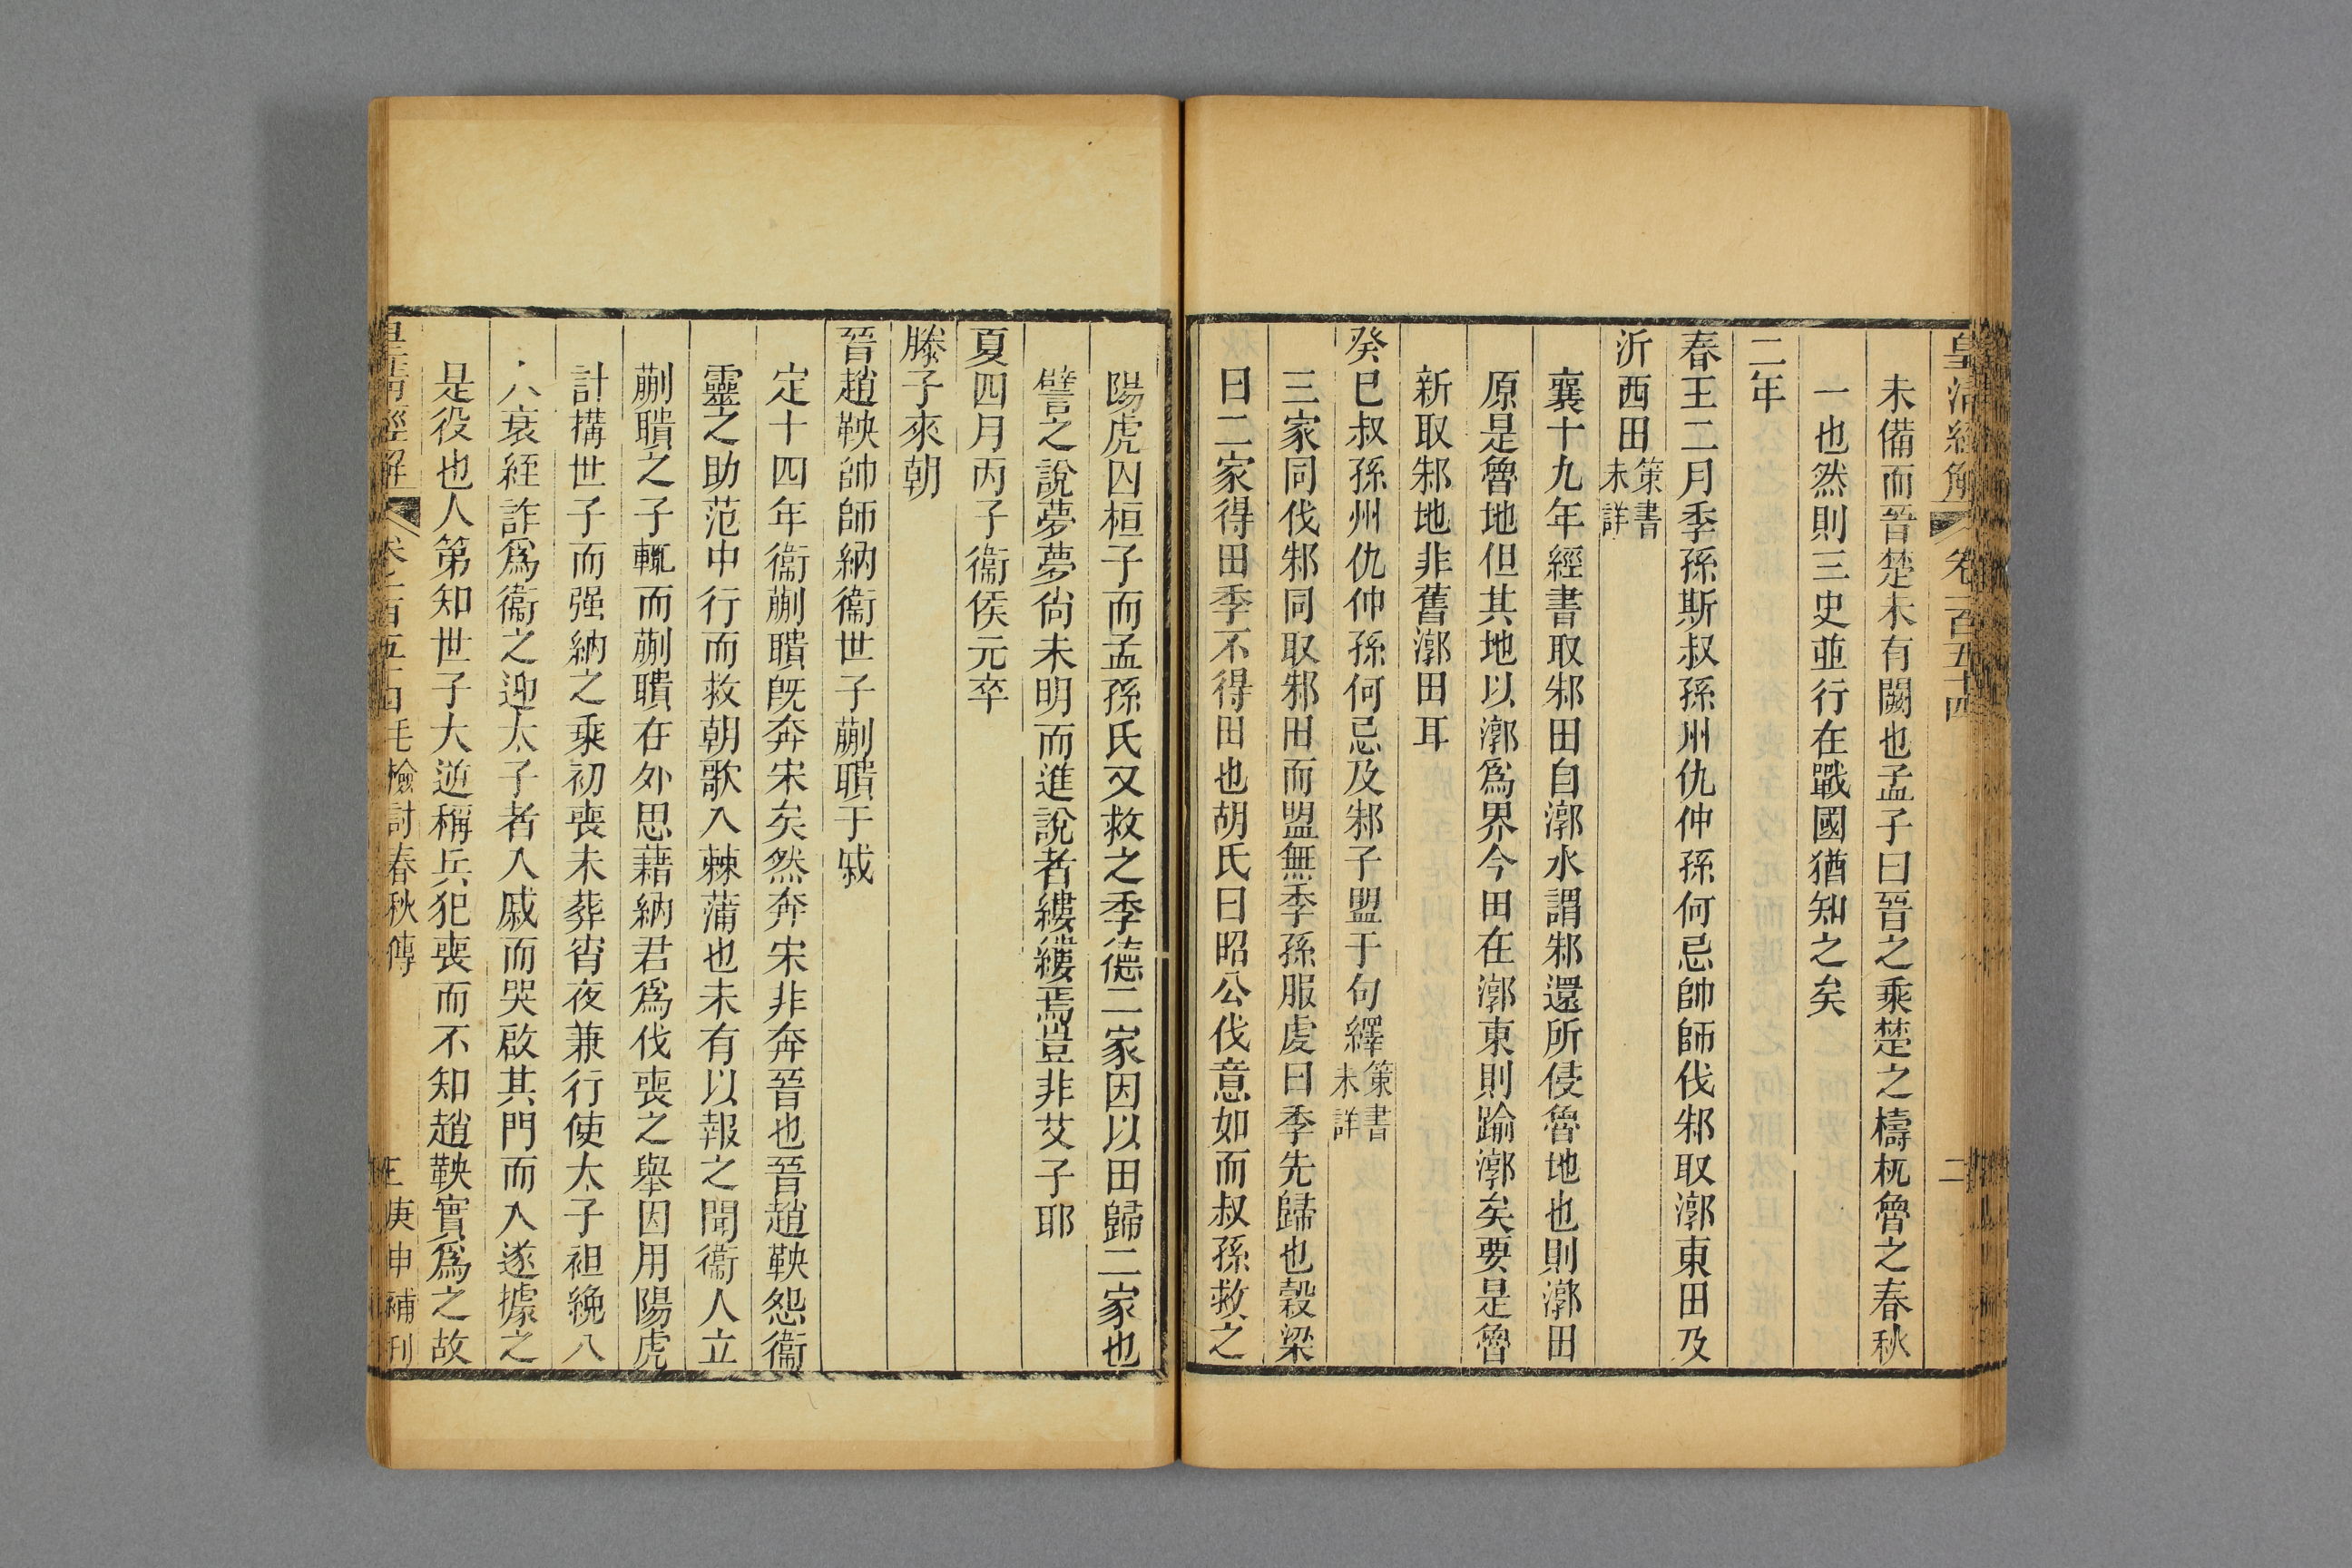 皇清經解 卷一百五十四 二
未備而晉楚未有闕也孟子曰晉之乘楚之檮杌魯之春秋
一也然則三史並行在戰國猶知之矣
二年
春王二月季孫斯叔孫州仇仲孫何忌帥師伐邾取漷東田及
沂西田策書未詳
襄十九年經書取邾田自漷水謂邾還所侵魯地也則漷田
原是魯地但其地以漷為界今田在漷東則踰漷矣要是魯
新取邾地非舊漷田耳
癸巳叔孫州仇仲孫何忌及邾子盟于句繹策書未詳
三家同伐邾同取邾田而盟無季孫服虔曰季先歸也穀梁
曰二家得田季不得田也胡氏曰昭公伐意如而叔孫救之
陽虎囚桓子而孟孫氏又救之季德二家因以田歸二家也
譬之說夢夢尚未明而進說者縷縷焉豈非艾子耶
夏四月丙子衞侯元卒
滕子來朝
晉趙鞅帥師納衞世子蒯聵于戚
定十四年衞蒯聵旣奔宋矣然奔宋非奔晉也晉趙鞅怨衞
靈之助范中行而救朝歌入棘蒲也未有以報之聞衞人立
蒯聵之子輒而蒯聵在外思藉納君爲伐喪之舉因用陽虎
計搆世子而强納之乘初喪未葬宵夜兼行使太子袒絻八
人衰絰詐爲衞之迎太子者入戚而哭啟其門而入遂據之
是役也人第知世子大逆稱兵犯喪而不知趙鞅實爲之故
皇清經解 卷一百五十四 毛檢討春秋傳 三 庚申補刊